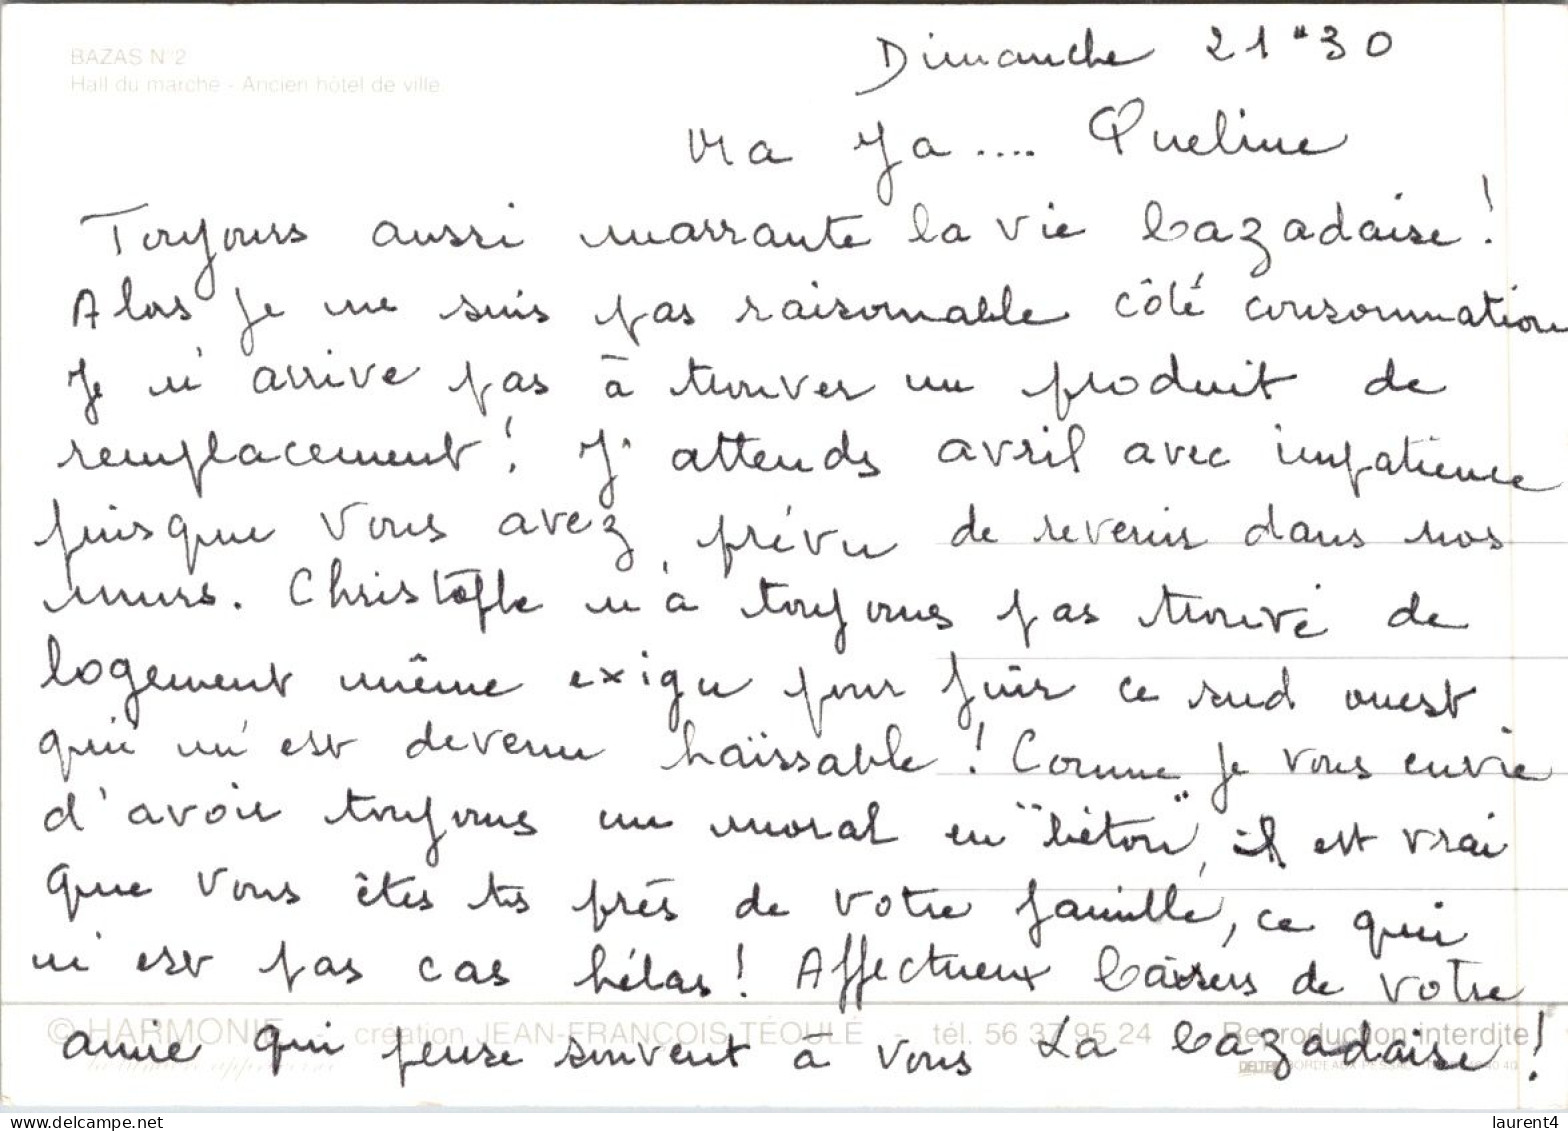 BAZAS N°2
Hall du marche - Ancien hôtel de ville
Dimanche 21H30
Ma Ja.... Queline
Toujours aussi marrante la vie bazadaise !
Alors je ne suis pas raisonnable côté consommation
Je n'arrive pas à trouver un produit de
remplacement ! J'attends avril avec impatience
puisque vous avez prévu de revenir dans nos
murs. Christophe n'a toujours pas trouvé de
logement même exigu pour fuir ce sud ouest
qui m'est devenu haïssable ! Comme je vous envie
d'avoir toujours un moral en "béton", il est vrai
que vous êtes ts près de votre famille, ce qui
n'est pas cas hélas ! Affectueux baisers de votre
© HARMONIE - création JEAN-FRANÇOIS TÉOULÉ - tél. 56 37 95 24 Reproduction interdite
amie qui pense souvent à vous La bazadaise !
BORDEAUX PESSAC
laurent4